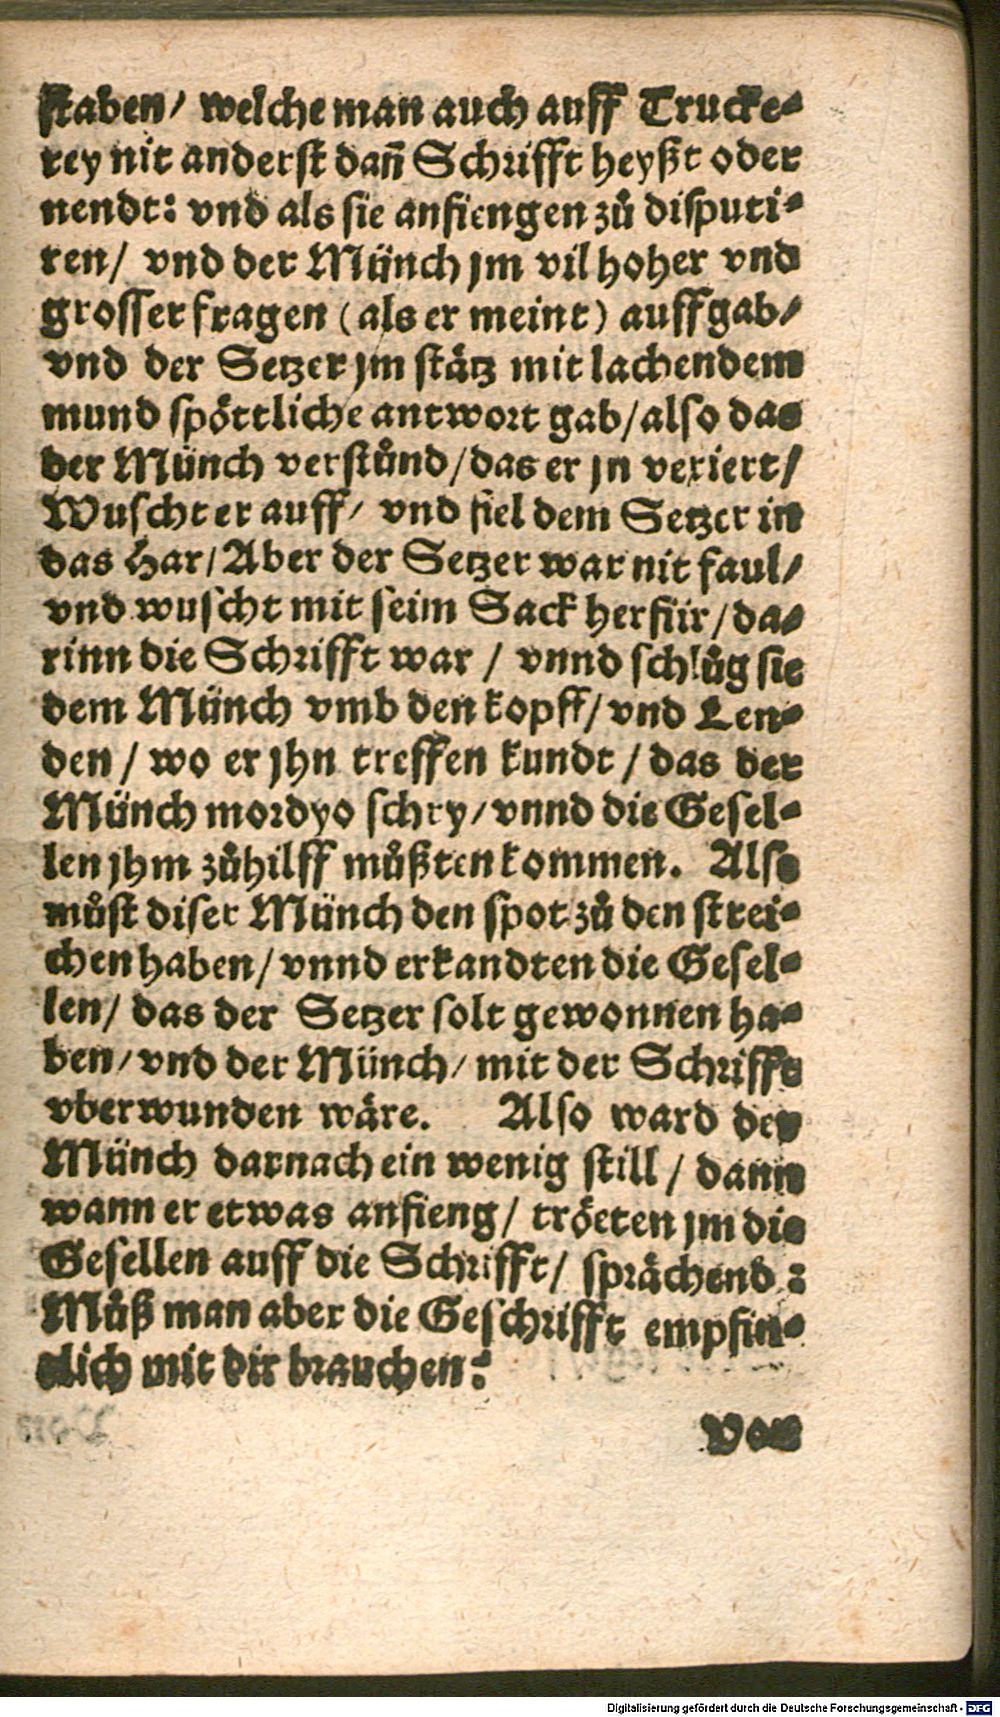 staben/ welche man auch auff Trucke-
rey nit anderst dañ Schrifft heyßt oder
nendt: vnd als sie anfiengen zů disputi-
ren/ vnd der Münch jm vil hoher vnd
grosser fragen (als er meint) auffgab/
vnd der Setzer jm stätz mit lachendem
mund spöttliche antwort gab/ also das
der Münch verstůnd/ das er jn vexiert/
Wuscht er auff/ vnd fiel dem Setzer in
das Har/ Aber der Setzer war nit faul/
vnd wuscht mit seim Sack herfür/ da-
rinn die Schrifft war / vnnd schlůg sie
dem Münch vmb den kopff/ vnd Len-
den / wo er jhn treffen kundt / das der
Münch mordyo schry/ vnnd die Gesel-
len jhm zůhilff můßten kommen. Also
můst diser Münch den spot zů den strei-
chen haben/ vnnd erkandten die Gesel-
len/ das der Setzer solt gewonnen ha-
ben/ vnd der Münch/ mit der Schrifft
vberwunden wäre. Also ward der
Münch darnach ein wenig still / dann
wann er etwas anfieng/ tröeten jm die
Gesellen auff die Schrifft/ sprächend:
Můß man aber die Geschrifft empfin-
dlich mit dir brauchen:
Von
Digitalisierung gefördert durch die Deutsche Forschungsgemeinschaft - DFG